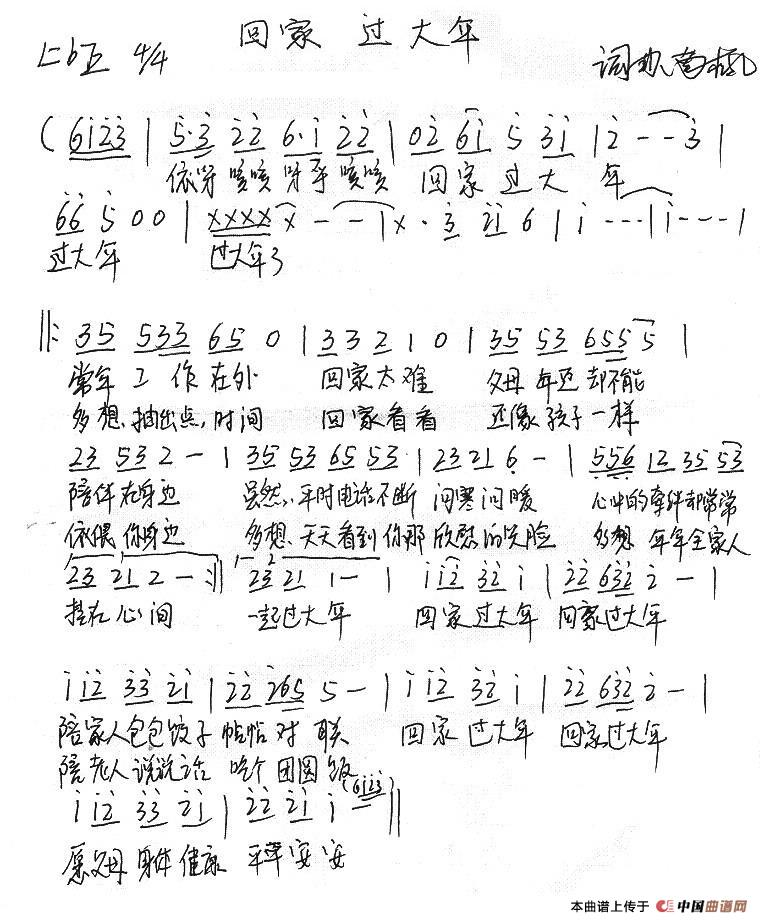 回家 过大年
1=bE 4/4
词曲
(6123 | 5·3 22 6·1 22 | 02 61 5 31 | 2 - - 3 |
依呀 咳咳 呀乎 咳咳 回家 过大 年
66 5 0 0 | XXXX X - - | X · 3 21 6 | 1 - - - | 1 - - - |
过大年 过大年了
||: 35 533 65 0 | 33 2 1 0 | 35 53 655 5 |
常年 工作 在外 回家太难 父母 年迈 却不能
多想 抽出点 时间 回家看看 还像 孩子 一样
23 53 2 - | 35 53 65 53 | 23 21 6 - | 556 12 35 53
陪伴在身边 虽然 平时电话不断 问寒问暖 心中的牵绊都常常
依偎你身边 多想 天天看到你那 欣慰的笑脸 多想 年年全家人
23 21 2 - :|| 23 21 1 - | 1 12 32 1 | 22 632 2 - |
挂在心间 一起过大年 回家过大年 回家过大年
1 12 33 21 | 22 265 5 - | 1 12 32 1 | 22 632 2 - |
陪家人包包饺子 帖帖对联 回家过大年 回家过大年
陪老人说说话 吃个团圆饭
1 12 33 21 | 22 21 1 - (6123) ||
愿父母身体健康 平平安安
本曲谱上传于 中国曲谱网